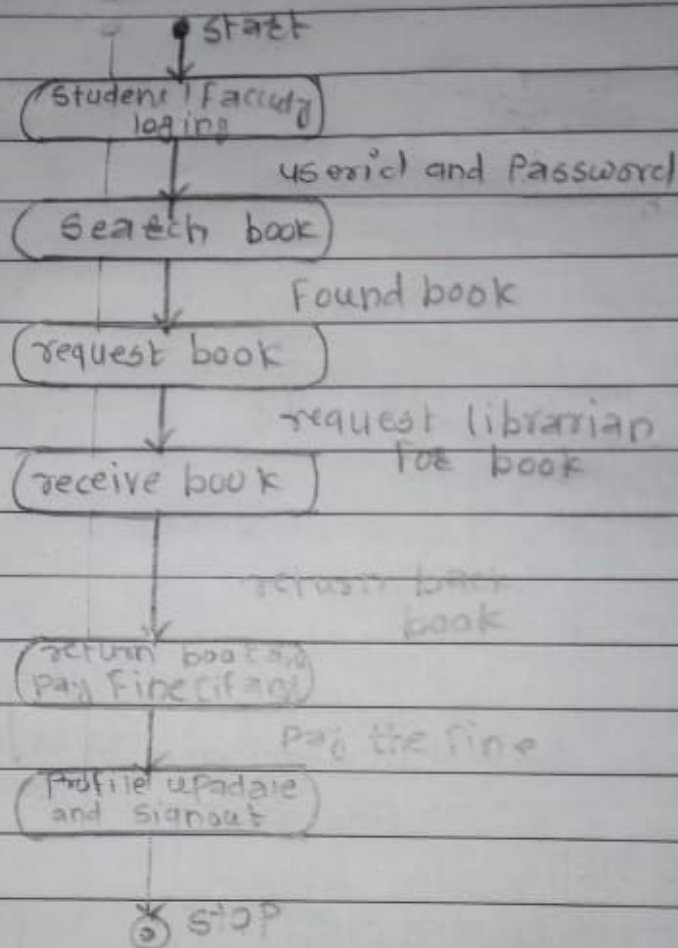 start
Student / Faculty
loging
userid and Password
Search book
Found book
request book
request librarian
For book
receive book
return back
book
return book and
pay Fine (if any)
Pay the fine
Profile upadate
and signout
STOP